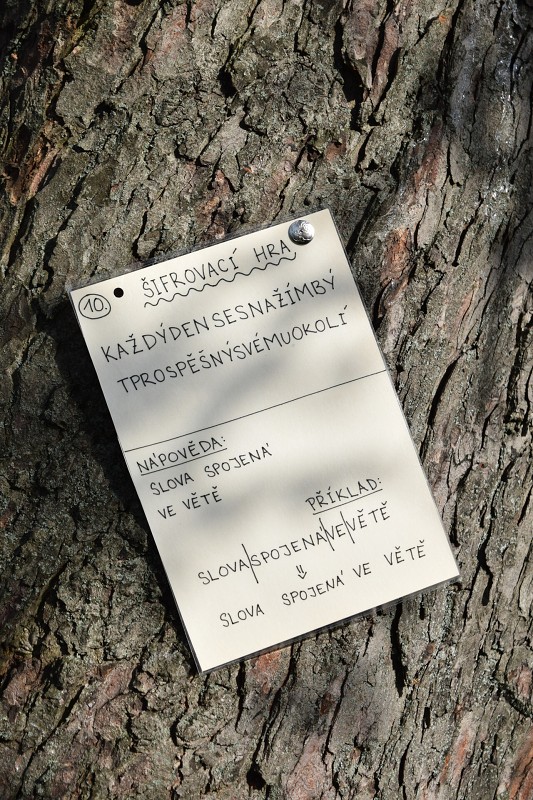 10. ŠIFROVACÍ HRA
KAŽDÝDENSESNAŽÍMBÝ
TPROSPĚŠNÝSVÉMUOKOLÍ
NÁPOVĚDA:
SLOVA SPOJENÁ
VE VĚTĚ
PŘÍKLAD:
SLOVA|SPOJENÁ|VE|VĚTĚ
⇓
SLOVA SPOJENÁ VE VĚTĚ